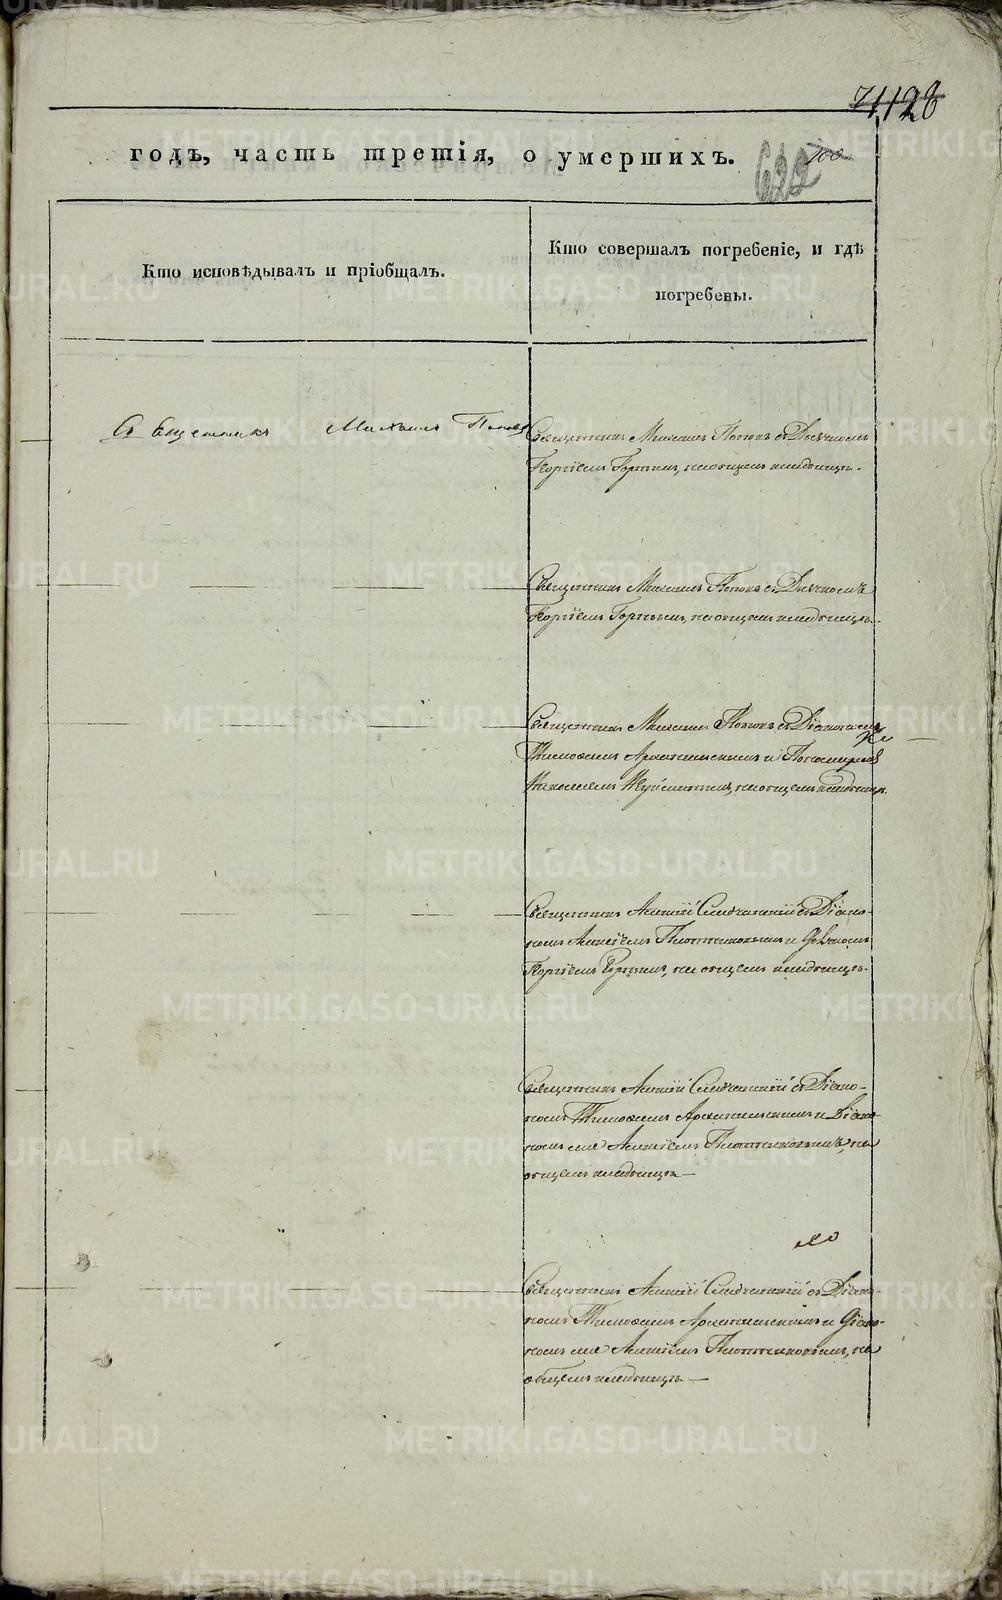 71.128
годъ, часть третія, о умершихъ.
622 100
Кто исповѣдывалъ и пріобщалъ.
Кто совершалъ погребеніе, и гдѣ
погребены.
Священникъ Михаилъ Поповъ
Священникъ Михаилъ Поповъ съ Дьячкомъ
Георгіемъ Горнымъ, на общемъ кладбищѣ.
Священникъ Михаилъ Поповъ съ Дьячкомъ
Георгіемъ Горнымъ, на общемъ кладбищѣ.
Священникъ Михаилъ Поповъ съ Діакономъ
Тимофеемъ Архангельскимъ и Пономаремъ
Николаемъ на общемъ кладбищѣ.
Священникъ Алексій съ Діако-
номъ Алексіемъ Плотниковымъ и Дьячкомъ
Георгіемъ Горнымъ, на общемъ кладбищѣ.
Священникъ Алексій съ Діако-
номъ Тимофеемъ Архангельскимъ и Діако-
номъ же Алексіемъ Плотниковымъ, на
общемъ кладбищѣ —
Священникъ Алексій съ Діако-
номъ Тимофеемъ Архангельскимъ и Діако-
номъ же Алексіемъ Плотниковымъ, на
общемъ кладбищѣ —
METRIKI.GASO-URAL.RU